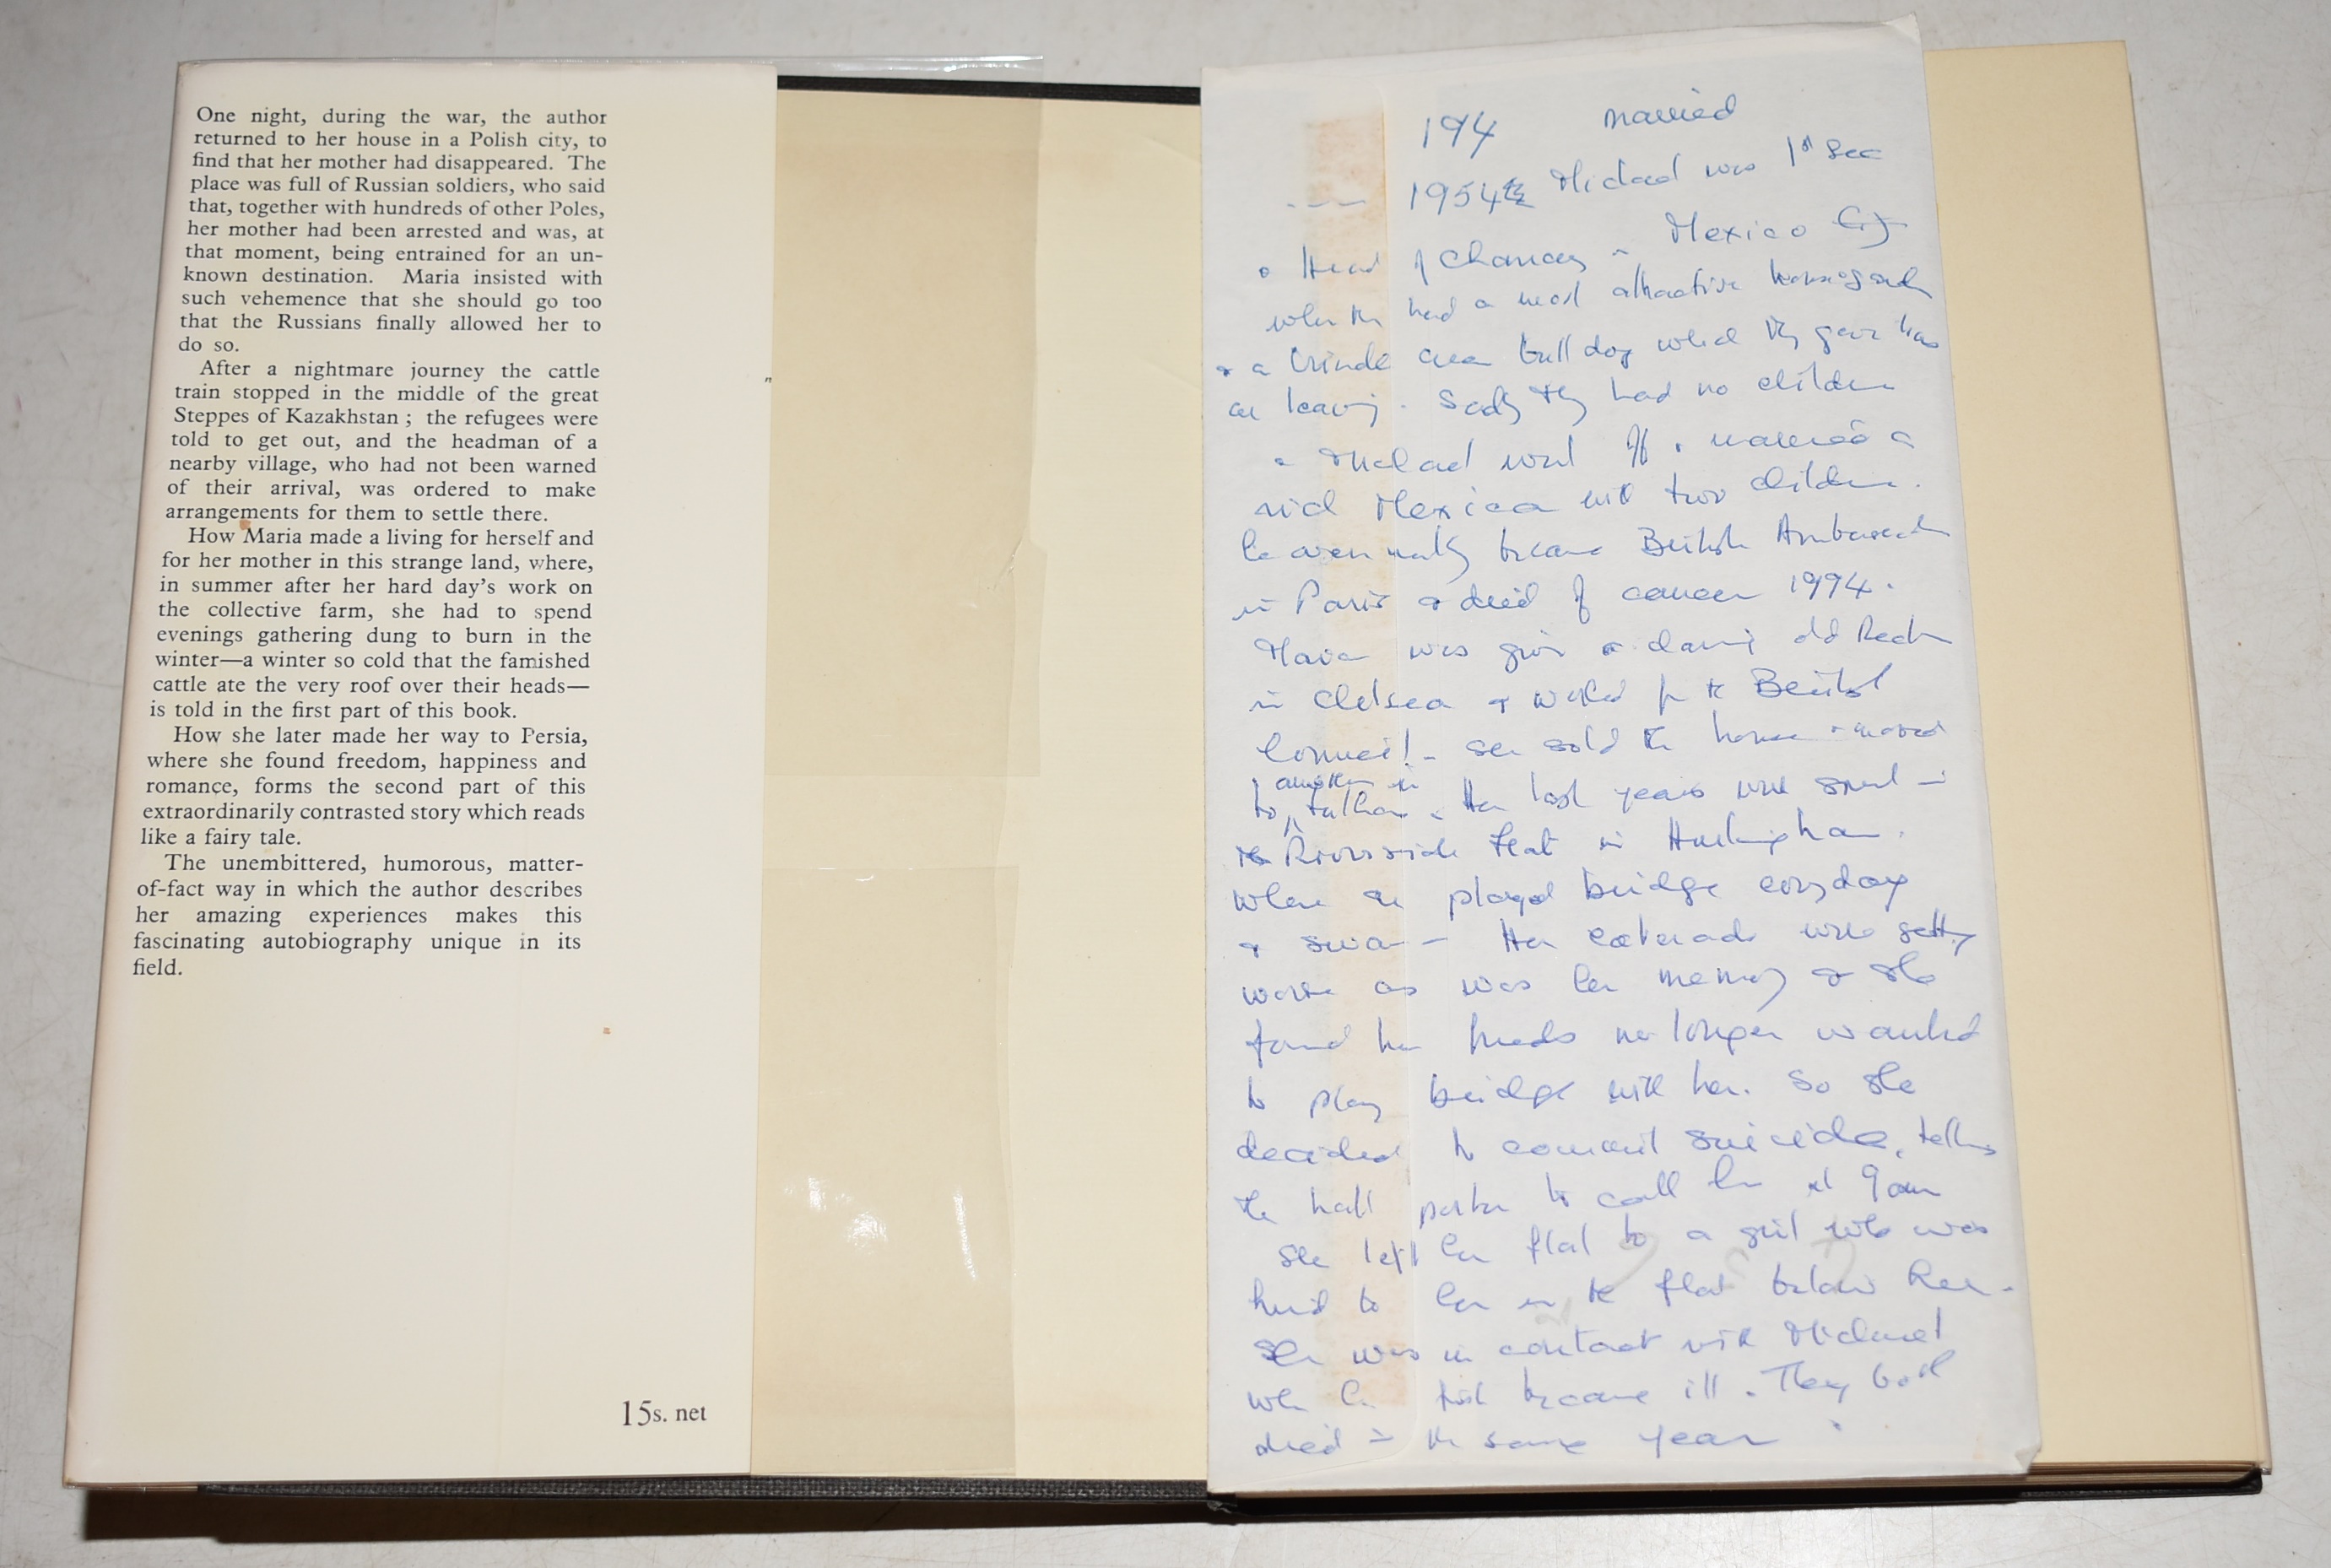 One night, during the war, the author
returned to her house in a Polish city, to
find that her mother had disappeared. The
place was full of Russian soldiers, who said
that, together with hundreds of other Poles,
her mother had been arrested and was, at
that moment, being entrained for an un-
known destination. Maria insisted with
such vehemence that she should go too
that the Russians finally allowed her to
do so.
After a nightmare journey the cattle
train stopped in the middle of the great
Steppes of Kazakhstan ; the refugees were
told to get out, and the headman of a
nearby village, who had not been warned
of their arrival, was ordered to make
arrangements for them to settle there.
How Maria made a living for herself and
for her mother in this strange land, where,
in summer after her hard day's work on
the collective farm, she had to spend
evenings gathering dung to burn in the
winter—a winter so cold that the famished
cattle ate the very roof over their heads—
is told in the first part of this book.
How she later made her way to Persia,
where she found freedom, happiness and
romance, forms the second part of this
extraordinarily contrasted story which reads
like a fairy tale.
The unembittered, humorous, matter-
of-fact way in which the author describes
her amazing experiences makes this
fascinating autobiography unique in its
field.
15s. net
194 married
1954 Michael was 1st Sec
& Head of Chancery in Mexico City
where they had a most attractive
& a brindle bull dog which they gave
on leaving. Sadly they had no children
& Michael went off & married a
rich Mexican with two children.
he eventually became British Ambassador
in Paris & died of cancer 1994.
Maria was given a old
in Chelsea & worked for the British
Council - she sold the house & moved
to another in Fulham. Her last years were spent in
Riverside flat in Hurlingham.
where she played bridge everyday
& swam - Her cataracts were getting
worse as was her memory & she
found her friends no longer wanted
to play bridge with her. So she
decided to commit suicide, telling
the hall porter to call her at 9am
She left her flat to a girl who was
kind to her in the flat below her.
She was in contact with Michael
when he first became ill. They both
died in the same year.